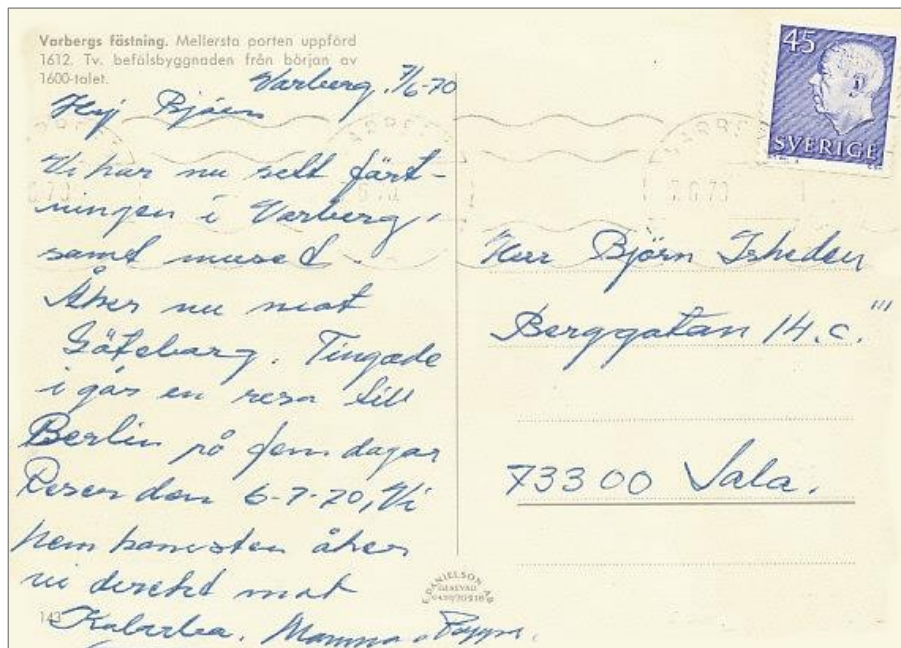 Varbergs fästning. Mellersta porten uppförd
1612. Tv. befälsbyggnaden från början av
1600-talet.
Varberg, 7/6-70
Hej Björn
Vi har nu sett fäst-
ningen i Varberg,
samt museet.
Åker nu mot
Göteborg. Tingade
i går en resa till
Berlin på fem dagar
Resen den 6-7-70, Vi
hem komsten åker
vi direkt mot
Mamma o Pappa.
143
45
SVERIGE
7.6.70
Herr Björn Isheden
Berggatan 14.c. "'
73300 Sala.
E. DANIELSON AB
GENEVAD
0430/70218